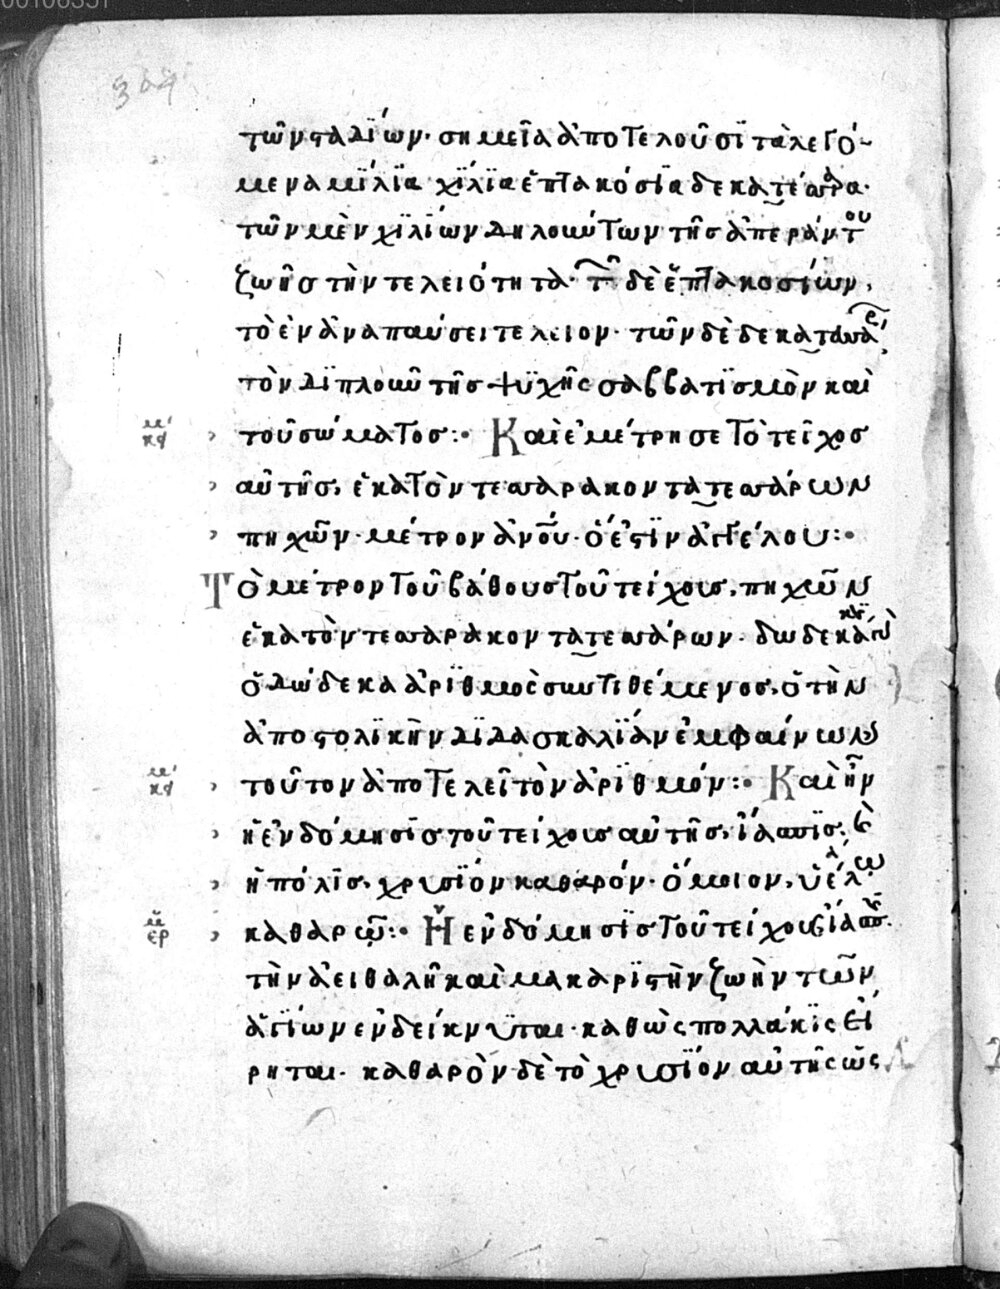 304
τῶν σταδΐων· σημεῖα ἀποτελοῦσϊ τὰ λεγό-
μενα μΐλϊα χΐλϊα ἑπτακόσϊα δεκατέσσαρα·
τῶν μὲν χϊλΐων δηλούντων τῆς ἀπεράντου
ζωῆς τὴν τελειότητα· τῶν δὲ ἑπτακοσΐων,
τὸ ἐν ἀναπαύσει τέλειον· τῶν δὲ δεκατεσσάρων,
τὸν διπλοῦν τῆς ψϋχῆς σαββατϊσμὸν καὶ
κειμ κδ τοῦ σώματος:· Καὶ ἐμέτρησε τὸ τεῖχος
αὐτῆς, ἑκατὸν τεσσαράκοντα τεσσάρων
πηχῶν· μέτρον ἀνοῦ· ὅ ἐστϊν ἀγγέλου:·
Τὸ μέτρον τοῦ βάθους τοῦ τείχους, πηχῶν
ἑκατὸν τεσσαράκοντα τεσσάρων· δωδεκάκϊς
ὁ δώδεκα ἀρϊθμὸς συντιθέμενος, ὃ τὴν
ἀποστολϊκὴν δϊδασκαλΐαν ἐμφαίνων
κδ τοῦτον ἀποτελεῖ τὸν ἀρϊθμόν:· Καὶ ἦν
ἡ ἐνδόμησϊς τοῦ τείχους αὐτῆς, ἴασπϊς, καὶ
ἡ πόλϊς, χρυσΐον καθαρόν· ὅμοιον, ὑέλω
ερ καθαρῷ:· Ἡ ἐνδόμησϊς τοῦ τείχους ἴασπϊς·
τὴν ἀειθαλῆ καὶ μακαρΐστην ζωὴν τῶν
ἁγΐων ἐνδείκνυται· καθὼς πολλάκϊς εἴ
ρηται· καθαρὸν δὲ τὸ χρυσΐον αὐτῆς ὡς